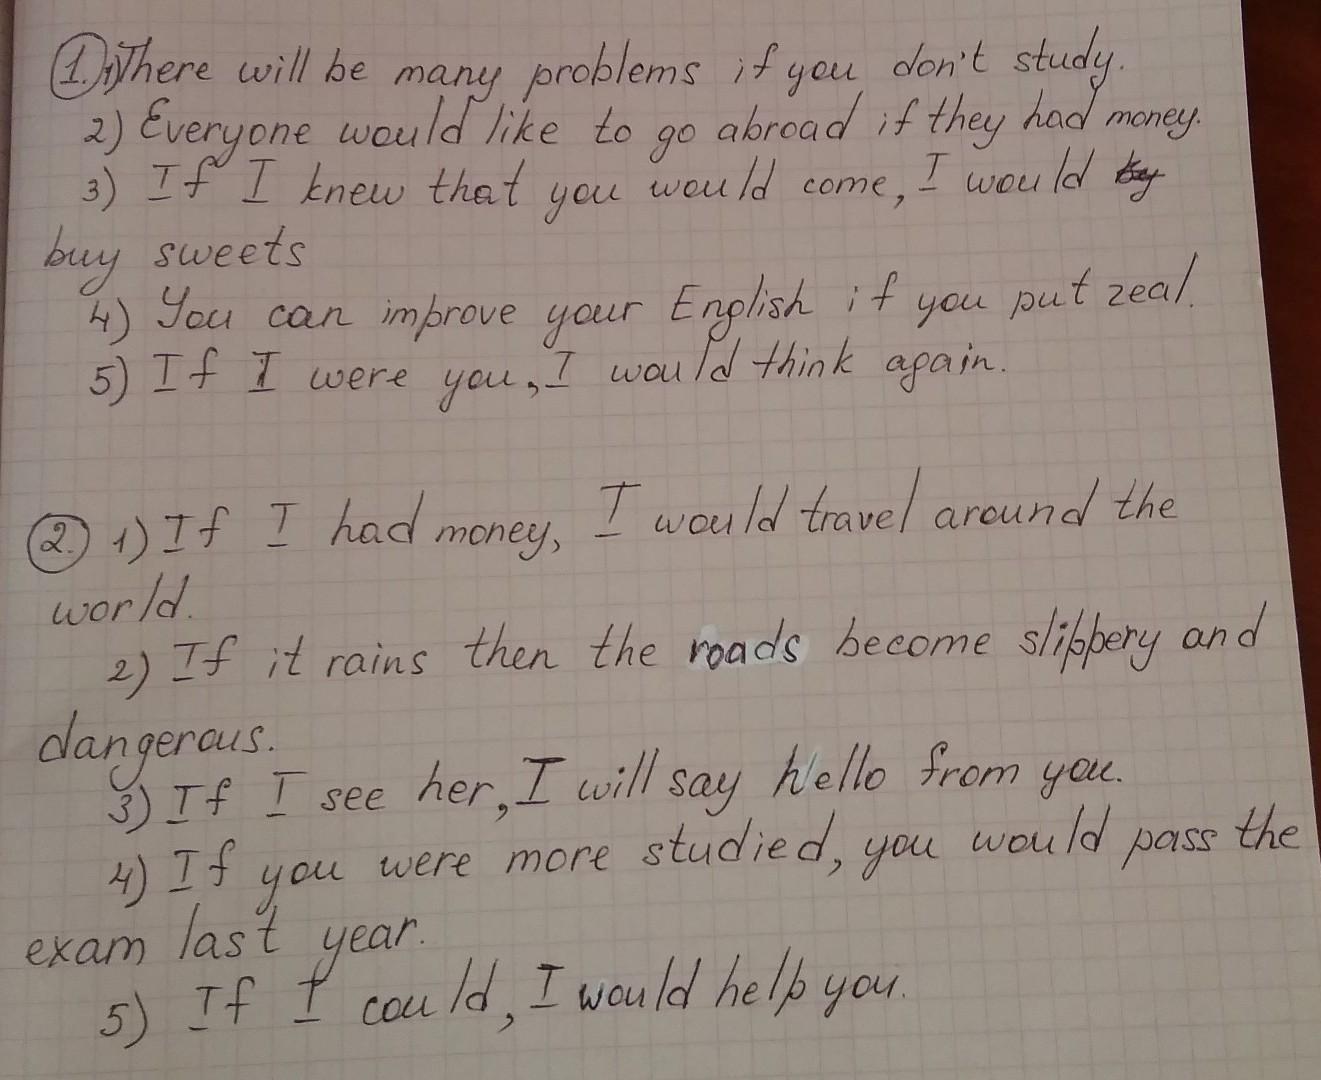 1. 1) There will be many problems if you don't study.
2) Everyone would like to go abroad if they had money.
3) If I knew that you would come, I would by
buy sweets
4) You can improve your English if you put zeal.
5) If I were you, I would think again.
2. 1) If I had money, I would travel around the
world.
2) If it rains then the roads become slippery and
dangerous.
3) If I see her, I will say hello from you.
4) If you were more studied, you would pass the
exam last year.
5) If I could, I would help you.